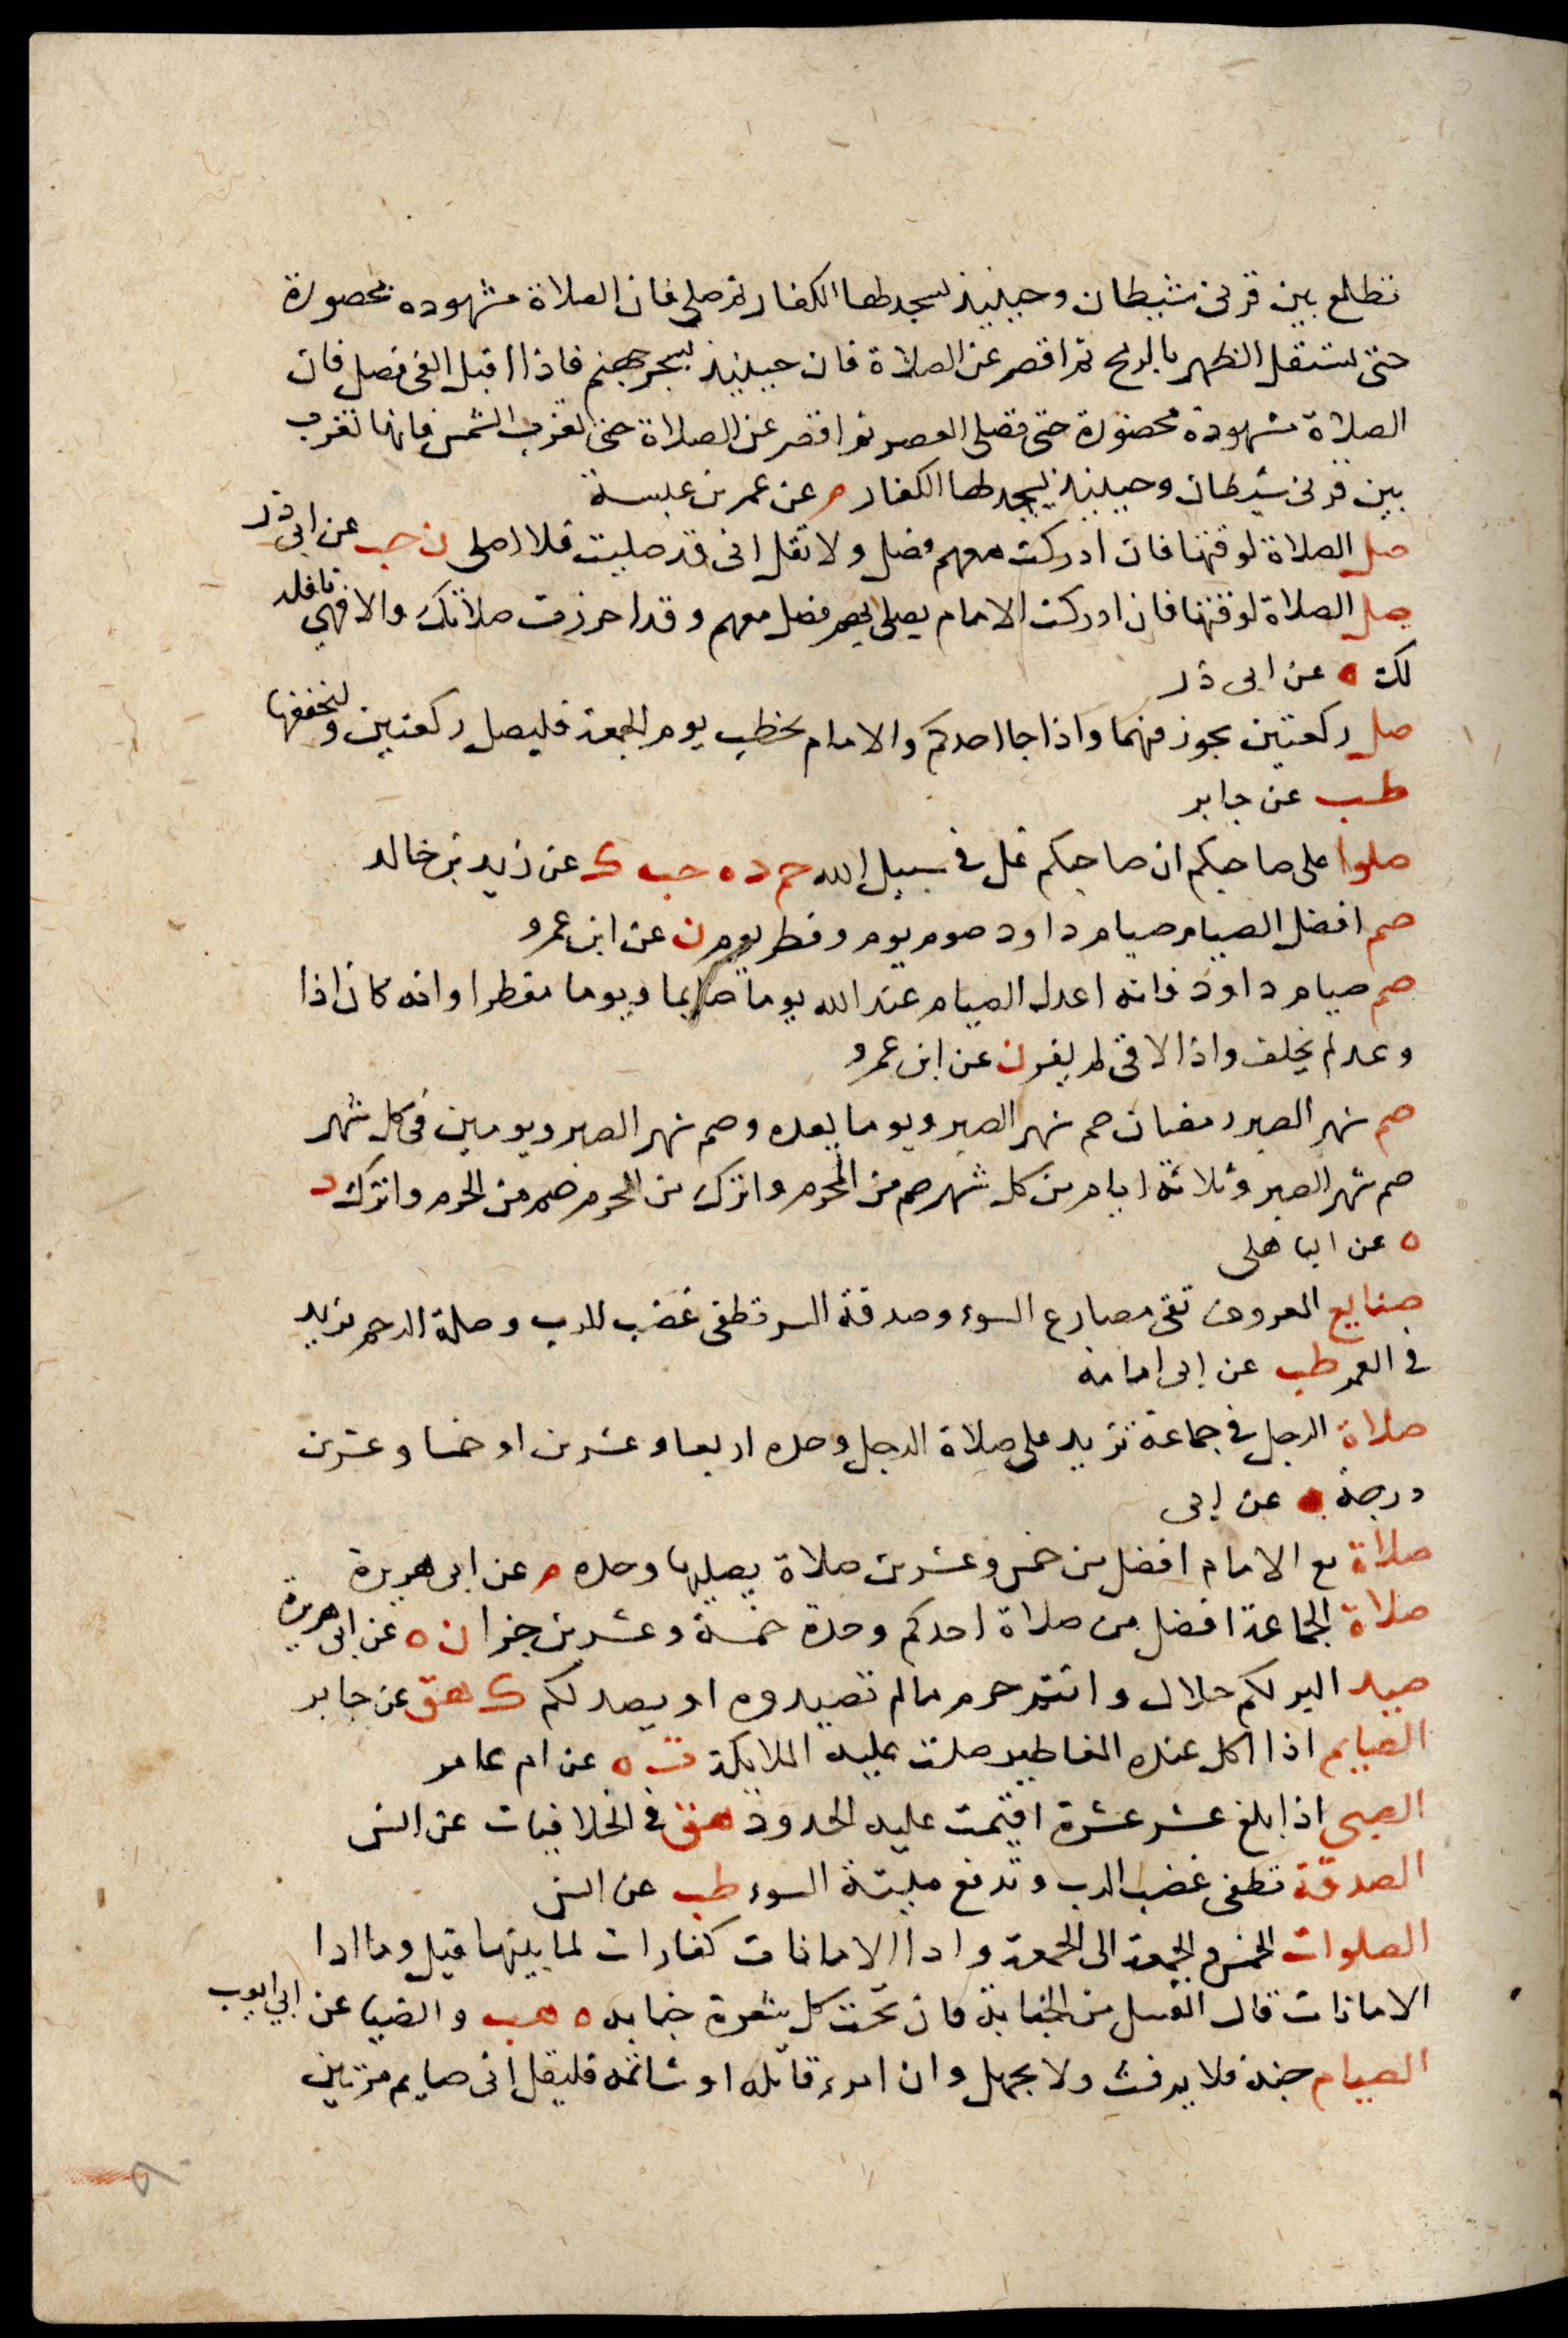 تطلع بين قرنى شيطان وحينيذ يسجد لها الكفار ثم صلى فان الصلاة مشهوده محصورة
حتى يستقل الظهر بالرمح ثم اقصر عن الصلاة فان حينيذ يسجر جهنم فاذا اقبل الفى فصل فان
الصلاة مشهودة محصورة حتى تصلى العصر ثم اقصر عن الصلاة حتى تغرب الشمس فانها تغرب
بين قرنى شيطان وحينيذ يسجد لها الكفار م عن عمر بن عبسة
صل الصلاة لوقتها فان ادركت معهم فصل ولا تقل انى قد صليت فلا اصلى ن حب عن ابى ذر
صل الصلاة لوقتها فان ادركت الامام يصلى بهم فصل معهم وقد احرزت صلاتك والا فهى نافله
لك ه عن ابى ذر
صل ركعتين تجوز فيهما واذا جا احدكم والامام يخطب يوم الجمعة فليصل ركعتين وليخففها
طب عن جابر
صلوا على صاحبكم ان صاحبكم غل فى سبيل الله حم د ه حب ك عن زيد بن خالد
صم افضل الصيام صيام داود صوم يوم وفطر يوم ن عن ابن عمرو
صم صيام داود فانه اعدل الصيام عند الله يوما صايما ويوما مفطرا وانه كان اذا
وعد لم يخلف واذا لاقى لم يفر ن عن ابن عمرو
صم شهر الصبر رمضان صم شهر الصبر ويوما بعده وصم شهر الصبر ويومين فى كل شهر
صم شهر الصبر وثلاثة ايام من كل شهر صم من المحرم واترك من المحرم صم من الحرم واترك د
ه عن الباهلى
صنايع المعروف تقى مصارع السوء وصدقة السر تطفى غضب الرب وصلة الرحم تزيد
فى العمر طب عن ابى امامة
صلاة الرجل فى جماعة تزيد على صلاة الرجل وحده اربعا وعشرين او خمسا وعشرين
درجة ه عن ابى
صلاة مع الامام افضل من خمس وعشرين صلاة يصليها وحده م عن ابى هريرة
صلاة الجماعة افضل من صلاة احدكم وحدة خمسة وعشرين جزا ن ه عن ابى هريرة
صيد البر لكم حلال وانتم حرم مالم تصيدوه او يصد لكم ك هق عن جابر
الصايم اذا اكل عنده المفاطير صلت عليه الملايكة ت ه عن ام عامر
الصبى اذا بلغ عشر عشرة اقيمت عليه الحدود هق فى الخلافيات عن انس
الصدقة تطفى غضب الرب وتدفع ميتة السوء طب عن انس
الصلوات الخمس والجمعة الى الجمعة وادا الامانات كفارات لما بينها قيل وما ادا
الامانات قال الغسل من الجنابة فان تحت كل شعرة جنابه ه هب والضيا عن ابي ايوب
الصيام جنة فلا يرفث ولا يجهل وان امرء قاتله او شاتمه فليقل انى صايم مرتين